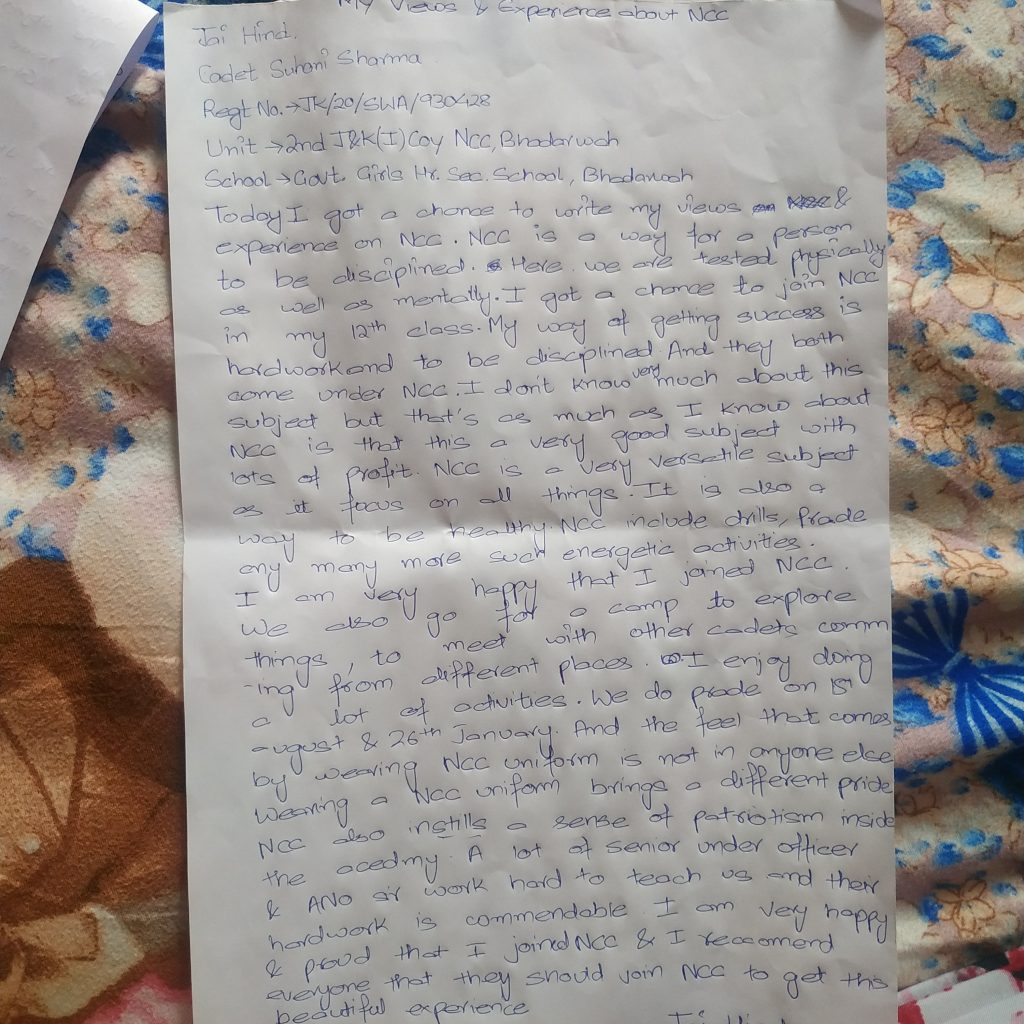 My Views & Experience about NCC
Jai Hind.
Cadet Suhani Sharma
Regt No. → JK/20/SWA/930428
Unit → 2nd J&K(I) Coy NCC, Bhadarwah
School → Govt. Girls Hr. Sec. School, Bhadarwah
Today I got a chance to write my views &
experience on NCC. NCC is a way for a person
to be disciplined. Here we are tested physically
as well as mentally. I got a chance to join NCC
in my 12th class. My way of getting success is
hardwork and to be disciplined. And they both
come under NCC. I don't know very much about this
subject but that's as much as I know about
NCC is that this a very good subject with
lots of profit. NCC is a very versatile subject
as it focus on all things. It is also a
way to be healthy. NCC include drills, Prade
eny many more such energetic activities.
I am very happy that I joined NCC.
We also go for a camp to explore
things, to meet with other cadets comm
-ing from different places. I enjoy doing
a lot of activities. We do prade on 15th
august & 26th January. And the feel that comes
by wearing NCC uniform is not in anyone else
Wearing a NCC uniform brings a different pride
NCC also instills a sense of patriotism inside
the acedmy. A lot of senior under officer
& ANO sir work hard to teach us and their
hardwork is commendable. I am very happy
& proud that I joined NCC & I reccomend
everyone that they should join NCC to get this
beautiful experience
Jai Hind